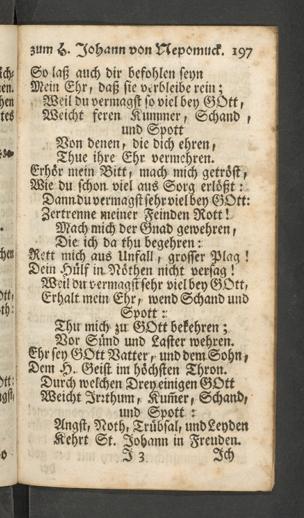 zum H. Johann von Nepomuck. 197
So laß auch dir befohlen seyn
Mein Ehr, daß sie verbleibe rein;
Weil du vermagst so viel bey GOtt,
Weicht feren Kummer, Schand,
und Spott
Von denen, die dich ehren,
Thue ihre Ehr vermehren.
Erhör mein Bitt, mach mich getröst,
Wie du schon viel aus Sorg erlößt:
Dann du vermagst sehr viel bey GOtt:
Zertrenne meiner Feinden Rott!
Mach mich der Gnad gewehren,
Die ich da thu begehren:
Rett mich aus Unfall, grosser Plag!
Dein Hülf in Nöthen nicht versag!
Weil du vermagst sehr viel bey GOtt,
Erhalt mein Ehr, wend Schand und
Spott:
Thu mich zu GOtt bekehren;
Vor Sünd und Laster wehren.
Ehr sey GOtt Vatter, und dem Sohn,
Dem H. Geist im höchsten Thron.
Durch welchen Dreyeinigen GOtt
Weicht Irrthum, Kum̄er, Schand,
und Spott:
Angst, Noth, Trübsal, und Leyden
Kehrt St. Johann in Freuden.
J 3 Jch